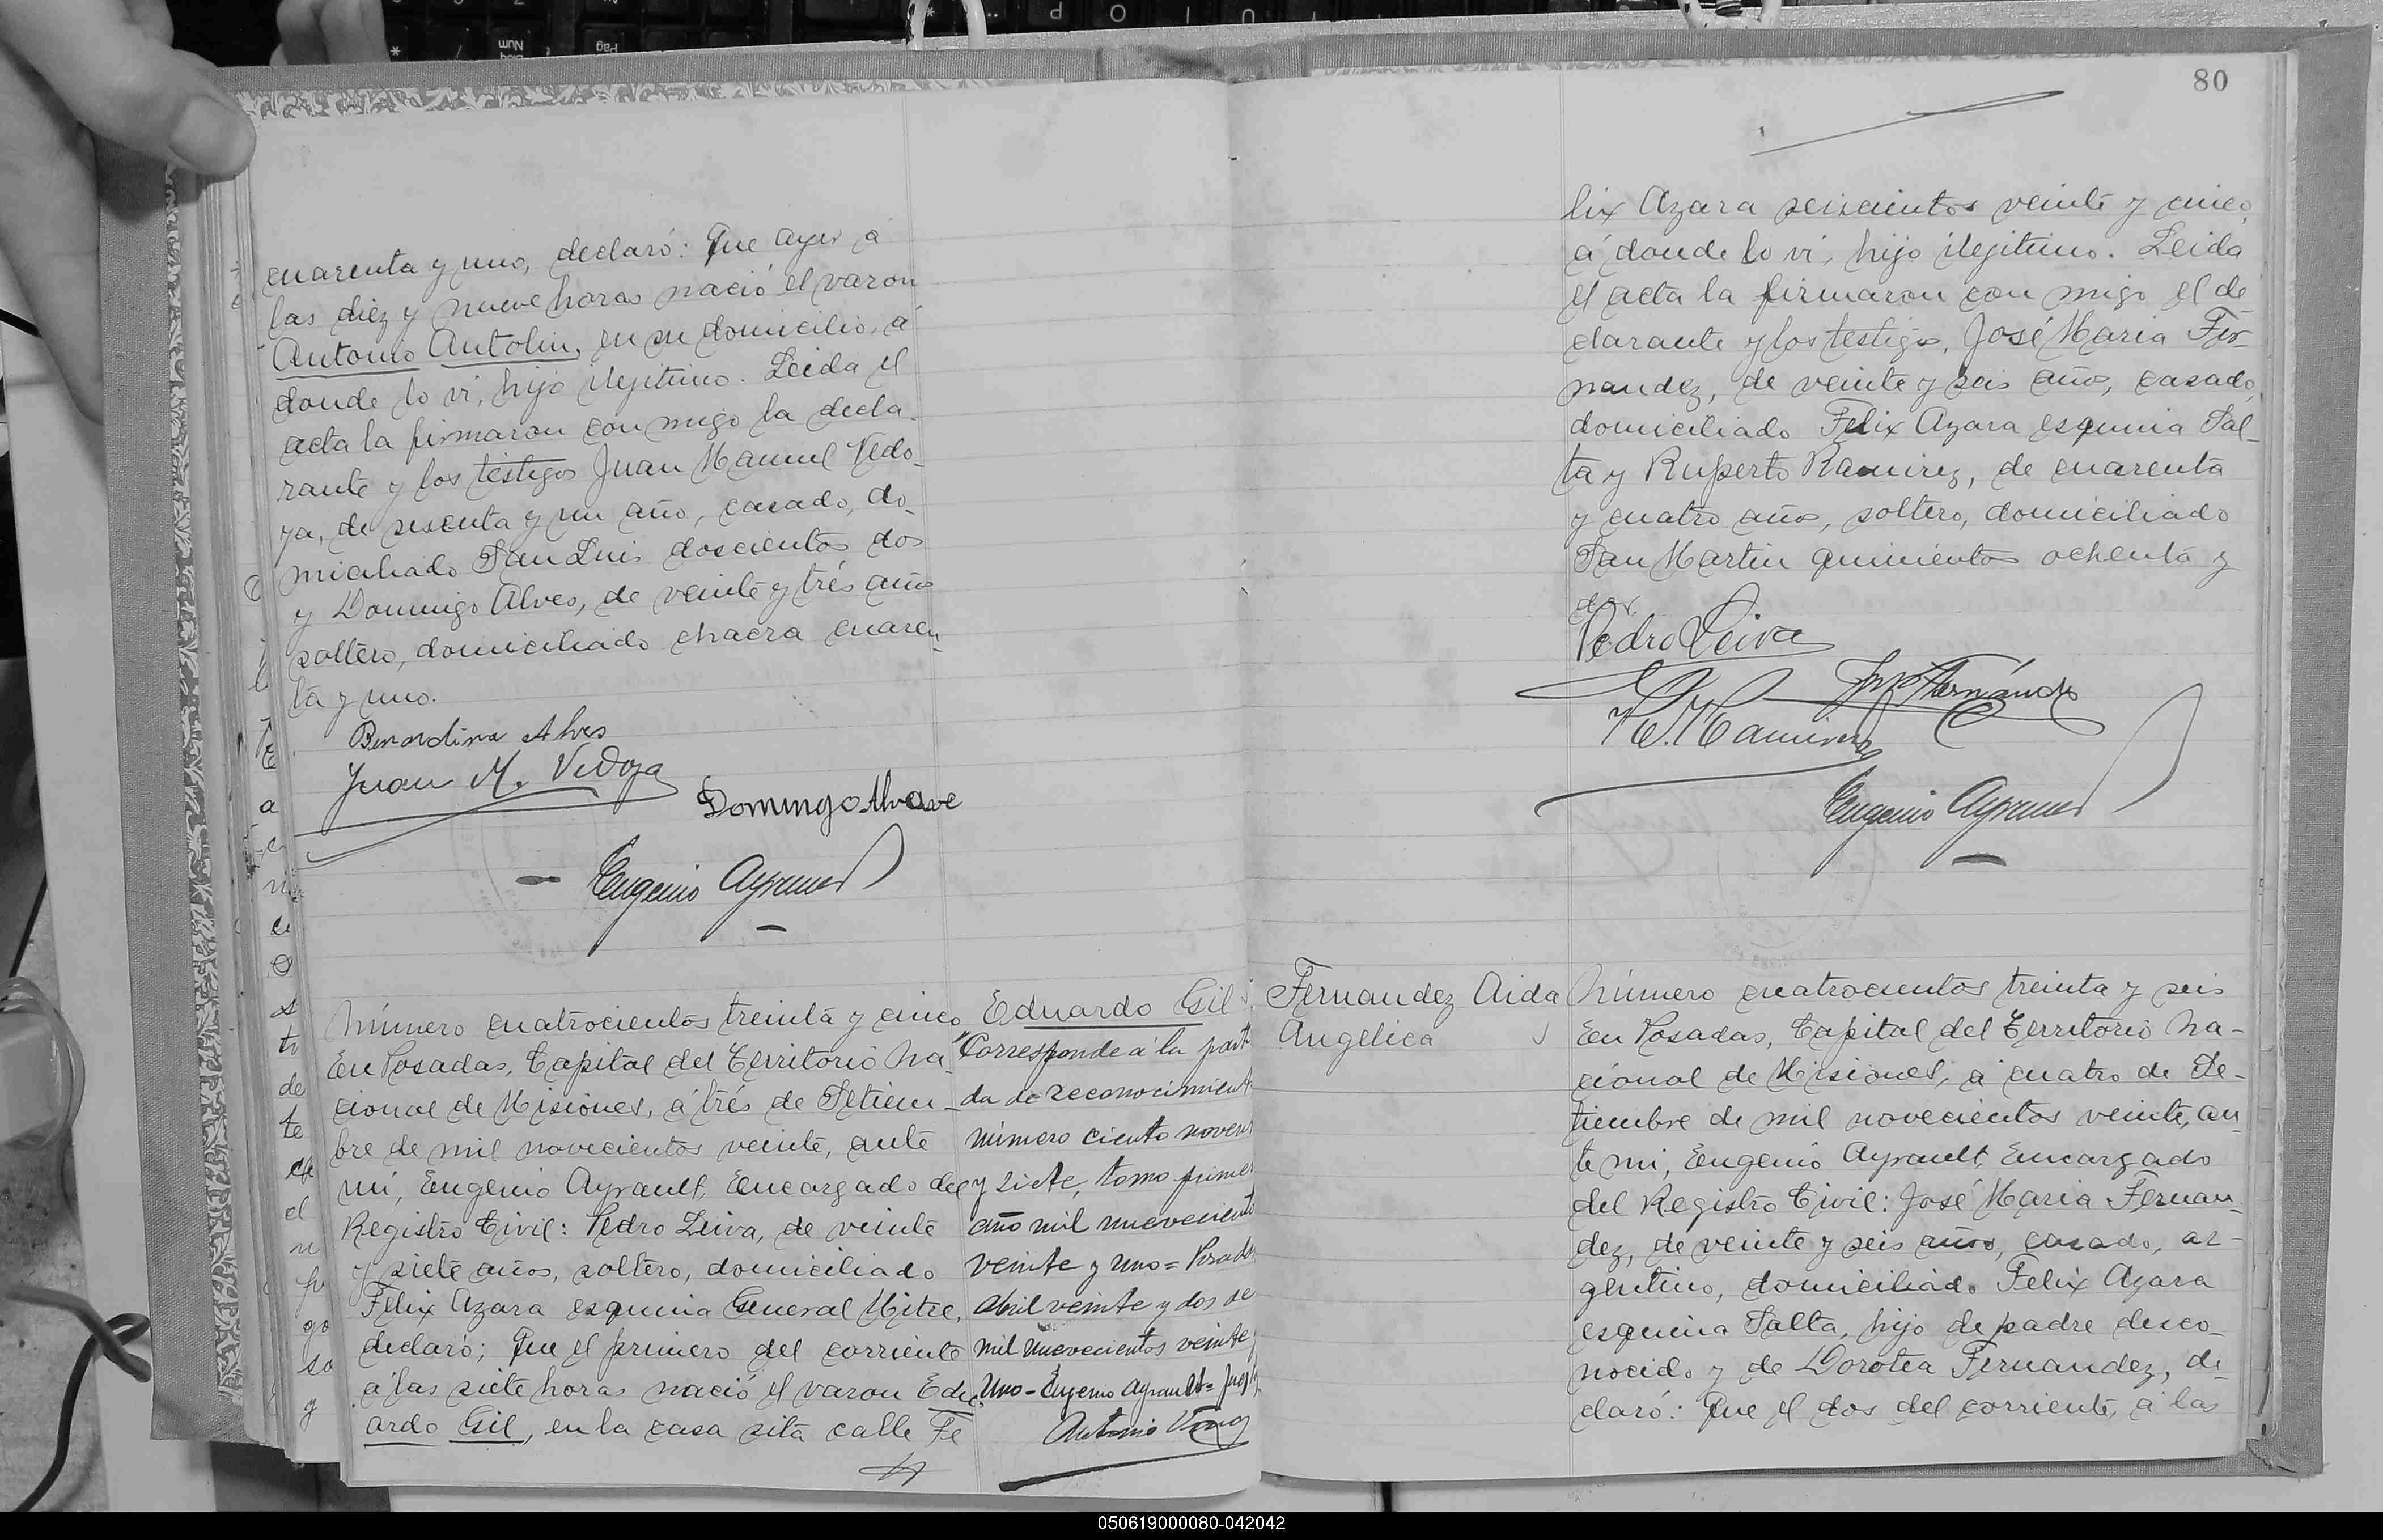 cuarenta y uno, declaró: Que ayer á
las diez y nueve horas nació el varon
Antonio Antolin, en su domicilio, á
donde lo vi, hijo ilegitimo. Leida el
acta la firmaron con migo la decla-
rante y los testigos Juan Manuel Vedo-
ya, de sesenta y un año, casado, do-
miciliado San Luis doscientos dos
y Domingo Alves, de veinte y trés años
soltero, domiciliado chacra cuaren-
ta y uno.
Bernardina Alves
Juan M. Vedoya
Domingo Alvave
Eugenio Ayrault
Número cuatrocientos treinta y cinco
En Posadas, Capital del Territorio Na-
cional de Misiones, á trés de Setiem-
bre de mil novecientos veinte, ante
mi, Eugenio Ayrault, Encargado del
Registro Civil: Pedro Leiva, de veinte
y siete años, soltero, domiciliado
Félix Azara esquina General Mitre,
declaró; Que el primero del corriente
á las siete horas nació el varon Edu-
ardo Gil, en la casa sita calle Fe
Eduardo Gil
"Corresponde á la parti
da de reconocimient
número ciento noven
y siete, tomo primer
año mil nuevecientos
veinte y uno = Posadas
abril veinte y dos de
mil nuevecientos veinte y
Uno - Eugenio Ayrault =
Antonio
80
lix Azara seiscientos veinte y cinco,
á donde lo vi, hijo ilegitimo. Leida
el acta la firmaron con migo el de-
clarante y los testigos, José Maria Fer-
nandez, de veinte y seis años, casado,
domiciliado Felix Azara esquina Sal-
ta y Ruperto Ramirez, de cuarenta
y cuatro años, soltero, domiciliado
San Martin quinientos ochenta y
dos.
Pedro Leiva
José Fernández
R. Ramirez
Eugenio Ayrault
Fernandez Aida
Angélica
Número cuatrocientos treinta y seis
En Posadas, Capital del Territorio Na-
cional de Misiones, á cuatro de Se-
tiembre de mil novecientos veinte, an
te mi, Eugenio Ayrault, Encargado
del Registro Civil: José Maria Fernan-
dez, de veinte y seis años, casado, ar-
gentino, domiciliado Felix Azara
esquina Salta, hijo de padre desco-
nocido y de Dorotea Fernandez, de-
claró: Que el dos del corriente, á las
050619000080-042042